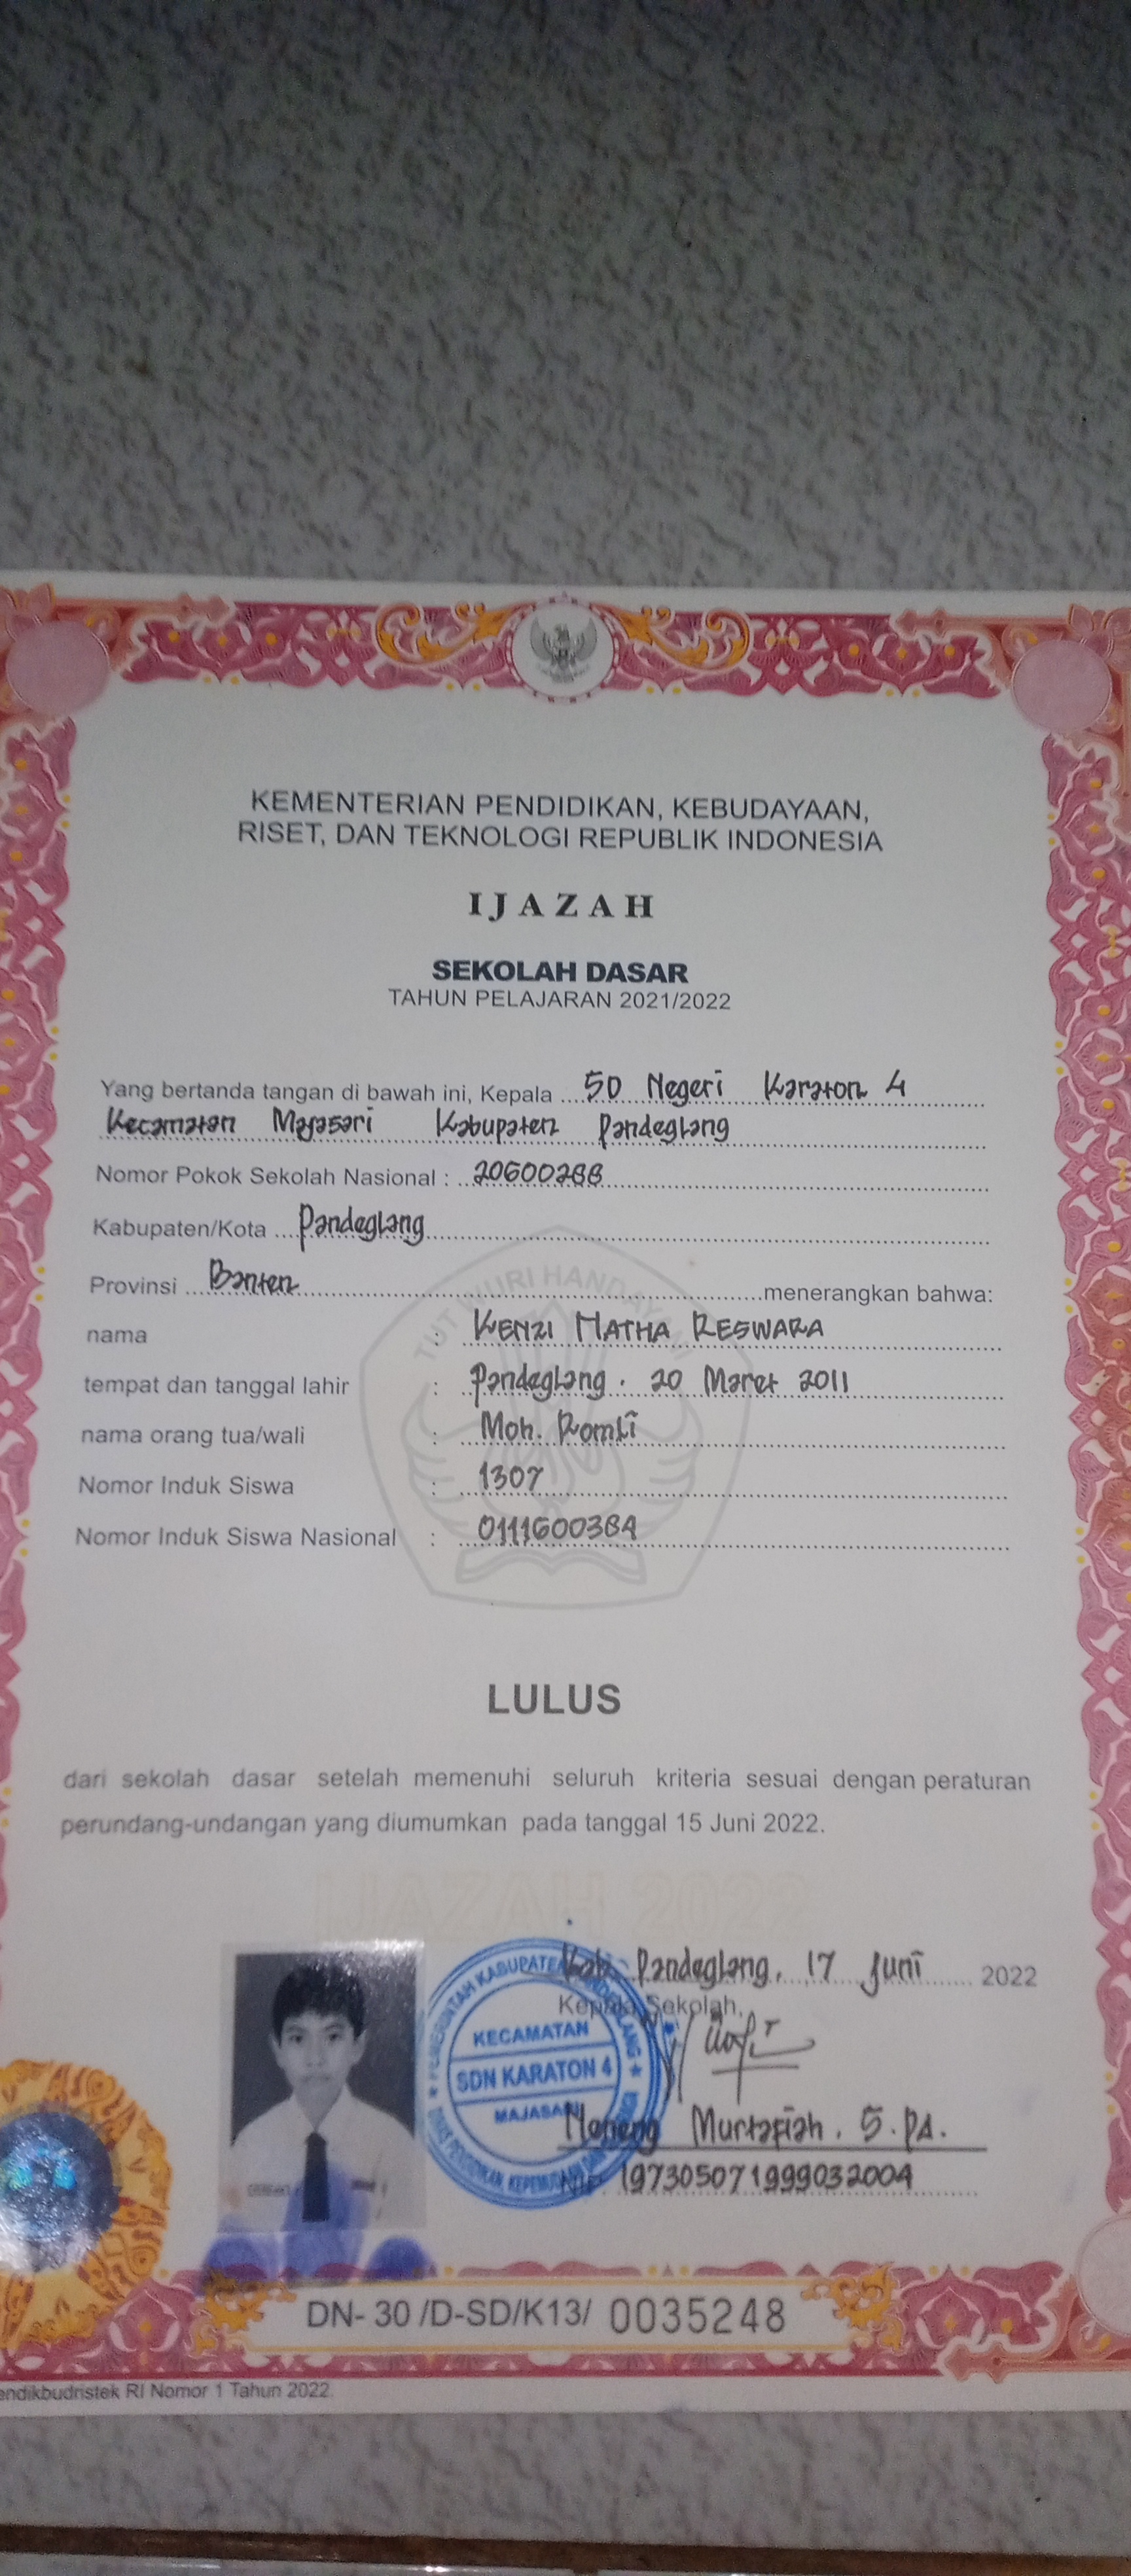 KEMENTERIAN PENDIDIKAN, KEBUDAYAAN,
RISET, DAN TEKNOLOGI REPUBLIK INDONESIA
IJAZAH
SEKOLAH DASAR
TAHUN PELAJARAN 2021/2022
Yang bertanda tangan di bawah ini, Kepala SD Negeri Karaton 4
Kecamatan Majasari Kabupaten Pandeglang
Nomor Pokok Sekolah Nasional : 20600288
Kabupaten/Kota Pandeglang
Provinsi Banten menerangkan bahwa:
nama : KENZI MATHA RESWARA
tempat dan tanggal lahir : Pandeglang, 20 Maret 2011
nama orang tua/wali : Moh. Romli
Nomor Induk Siswa : 1307
Nomor Induk Siswa Nasional : 0111600384
TUT WURI HANDAYANI
LULUS
dari sekolah dasar setelah memenuhi seluruh kriteria sesuai dengan peraturan
perundang-undangan yang diumumkan pada tanggal 15 Juni 2022.
IJAZAH 2022
Kab. Pandeglang, 17 Juni 2022
Kepala Sekolah,
PEMERINTAH KABUPATEN PANDEGLANG
KECAMATAN
SDN KARATON 4
MAJASARI
Murtafiah, S.Pd.
NIP. 197305071999032004
DN- 30 /D-SD/K13/ 0035248
endikbudristek RI Nomor 1 Tahun 2022.